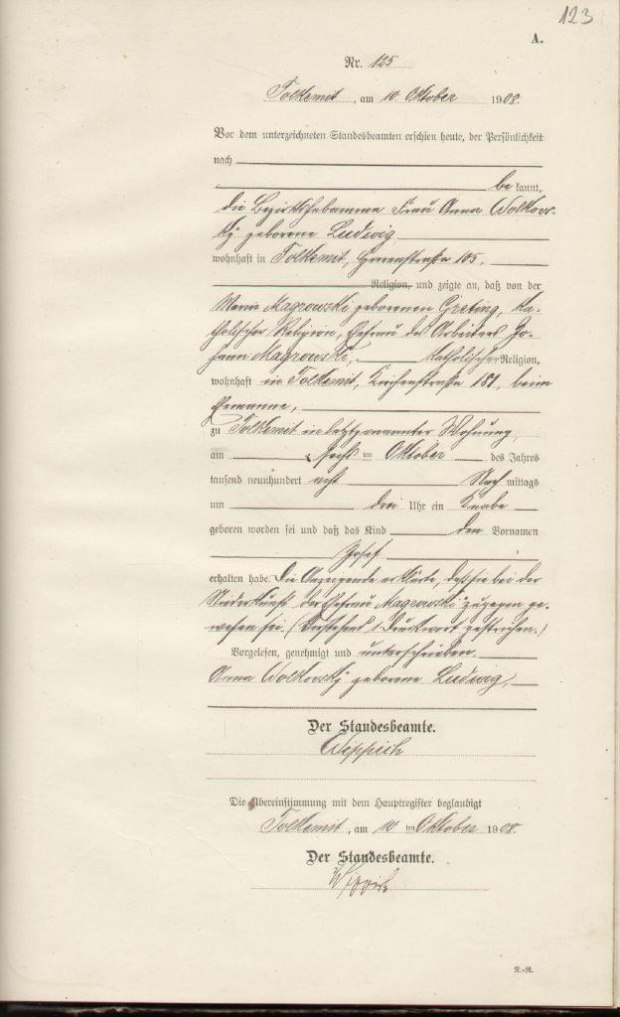 123
A.
Nr. 125
Tolkemit, am 10 Oktober 1908.
Vor dem unterzeichneten Standesbeamten erschien heute, der Persönlichkeit
nach
be kannt,
die Bezirkshebamme Frau Anna Wolkows-
ky geborene Ludwig,
wohnhaft in Tolkemit, 105,
Religion, und zeigte an, daß von der
Maria Magrowski geborenen Greting, ka-
tholischer Religion, Ehefrau des Arbeiters Jo-
hann Magrowski, katholischer Religion,
wohnhaft in Tolkemit, Kirchenstraße 181, beim
Ehemanne,
zu Tolkemit in letztgenannter Wohnung,
am sechs ten Oktober des Jahres
tausend neunhundert acht Nach mittags
um drei Uhr ein Knabe
geboren worden sei und daß das Kind den Vornamen
Josef
erhalten habe. Die Anzeigende erklärte, daß sie bei der
Niederkunft der Ehefrau Magrowski zugegen ge-
wesen sei. (Vorstehend 1 Druckwort gestrichen.)
Vorgelesen, genehmigt und unterschrieben.
Anna Wolkovsky geborene Ludwig,
Der Standesbeamte.
Weppich
Die Übereinstimmung mit dem Hauptregister beglaubigt
Tolkemit, am 10 ten Oktober 1908.
Der Standesbeamte.
R.-R.